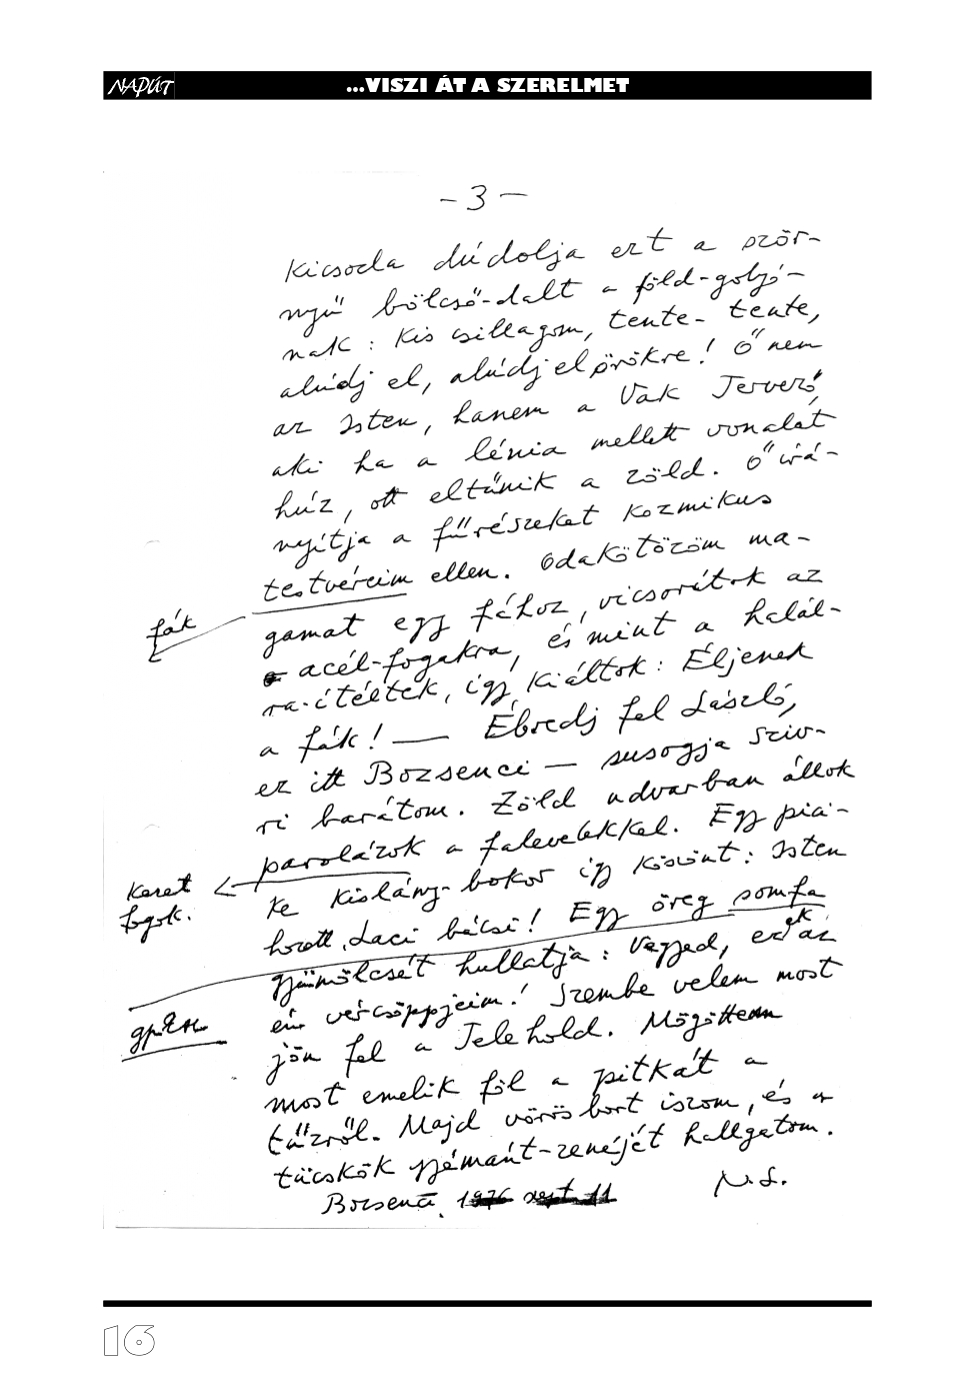 NAPÚT
...VISZI ÁT A SZERELMET
- 3 -
Kicsoda dúdolja ezt a ször-
nyű bölcső-dalt a föld-golyó-
nak: Kis csillagom, tente-tente,
alúdj el, alúdj el örökre! Ő nem
az Isten, hanem a Vak Tervező,
aki ha a lénia mellett vonalat
húz, ott eltűnik a zöld. Ő irá-
nyítja a fűrészeket kozmikus
testvéreim ellen. Odakötözöm ma-
fák
gamat egy fához, vicsorítok az
acél-fogakra, és mint a halál-
ra-itéltek, így kiáltok: Éljenek
a fák! — Ébredj fel László,
ez itt Bozsenci — susogja sziv-
ri barátom. Zöld udvarban állok
parolázok a falevelekkel. Egy pici-
kezet
fogok.
ke kislány-bokor így köszönt: Isten
hozott, Laci bácsi! Egy öreg somfa
gyümölcsét hullatja: Vegyed, ezek az
én vércsöppjeim! Szembe velem most
jön fel a Telehold. Mögöttem
most emelik föl a pitkát a
tűzről. Majd vörös bort iszom, és a
tücskök gyémánt-zenéjét hallgatom.
N. L.
Bozsenci,
16